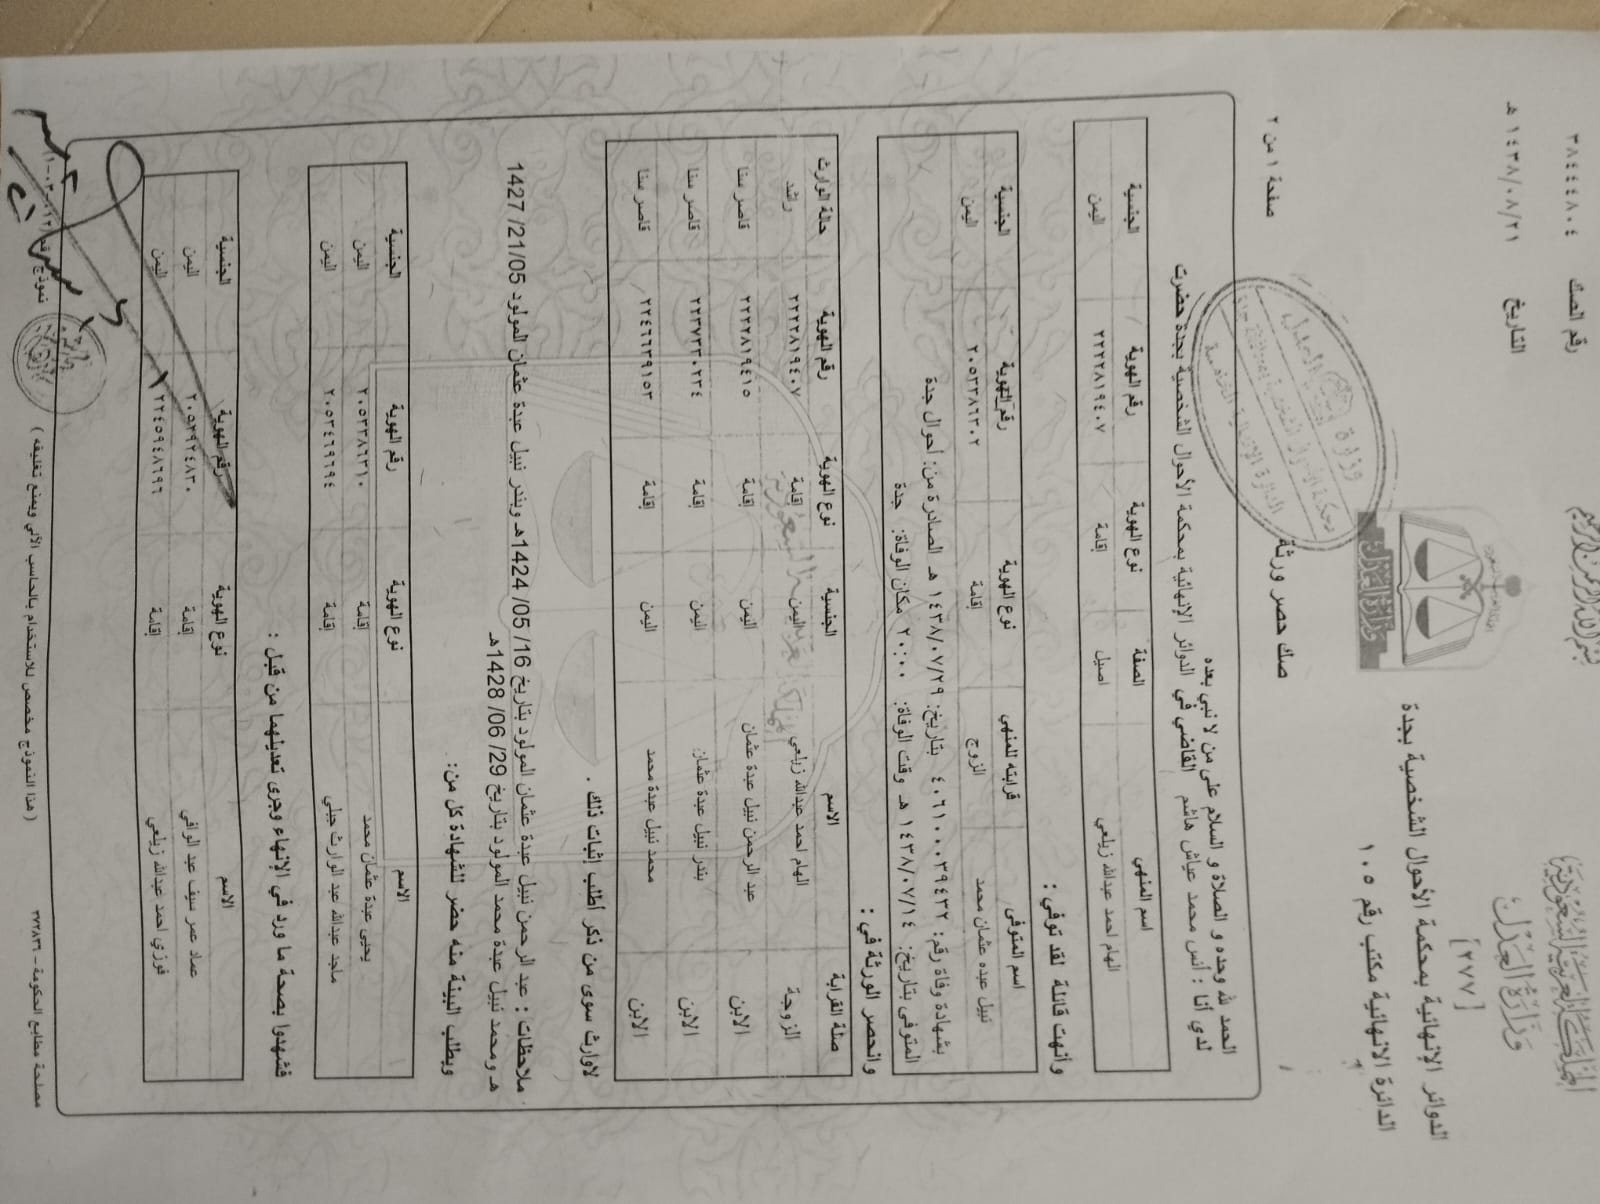 بسم الله الرحمن الرحيم
المملكة العربية السعودية
وزارة العدل
[٢٧٧]
الدوائر الإنهائية بمحكمة الأحوال الشخصية بجدة
الدائرة الإنهائية مكتب رقم ١٠٥
رقم الصك ٣٨٤٤٤٨٠٤
التاريخ ١٤٣٨/٠٨/٢١ هـ
وزارة العدل
صك حصر ورثة
صفحة ١ من ٢
الحمد لله وحده و الصلاة و السلام على من لا نبي بعده
لدي أنا : أنس محمد عياش هاشم القاضي في الدوائر الإنهائية بمحكمة الأحوال الشخصية بجدة حضرت
اسم المنهي الصفة نوع الهوية رقم الهوية الجنسية
الهام احمد عبدالله زيلعي اصيل إقامة ٢٢٢٢٨١٩٤٠٧ اليمن
وأنهت قائلة لقد توفي :
اسم المتوفى قرابته للمنهي نوع الهوية رقم الهوية الجنسية
نبيل عبده عثمان محمد الزوج إقامة ٢٠٥٣٣٨٦٣٠٢ اليمن
بشهادة وفاة رقم: ٤٠٦١٠٠٠٣٩٤٣٢ بتاريخ: ١٤٣٨/٠٧/٢٩ هـ الصادرة من: أحوال جدة
المتوفى بتاريخ: ١٤٣٨/٠٧/١٤ هـ وقت الوفاة: ٢٠:٠٠ مكان الوفاة: جدة
وانحصر الورثة في :
صلة القرابة الاسم الجنسية نوع الهوية رقم الهوية حالة الوارث
الزوجة الهام احمد عبدالله زيلعي اليمن إقامة ٢٢٢٢٨١٩٤٠٧ راشد
الابن عبد الرحمن نبيل عبدة عثمان اليمن إقامة ٢٢٢٢٨١٩٤١٥ قاصر سنا
الابن بندر نبيل عبدة عثمان اليمن إقامة ٢٢٣٧٣٣٠٢٣٤ قاصر سنا
الابن محمد نبيل عبدة محمد اليمن إقامة ٢٢٤٦٦٣٩١٥٣ قاصر سنا
لاوارث سوى من ذكر أطلب إثبات ذلك .
ملاحظات : عبد الرحمن نبيل عبدة عثمان المولود بتاريخ 16/ 05/ 1424هـ وبندر نبيل عبدة عثمان المولود 21/05/ 1427
هـ ومحمد نبيل عبدة محمد المولود بتاريخ 29/ 06/ 1428هـ
وبطلب البينة منه حضر للشهادة كل من:
الاسم نوع الهوية رقم الهوية الجنسية
يحيى عبدة عثمان محمد إقامة ٢٠٥٣٣٨٦٣١٠ اليمن
ماجد عبدالله عبد الوارث جبلي إقامة ٢٠٥٣٤٦٩٦٩٤ اليمن
فشهدوا بصحة ما ورد في الإنهاء وجرى تعديلهما من قبل :
الاسم نوع الهوية رقم الهوية الجنسية
عماد عمر سيف عبد الوافي إقامة ٢٠٥٢٩٢٤٨٣٠ اليمن
فوزي احمد عبدالله زيلعي إقامة ٢٢٤٥٩٤٨٦٩٦ اليمن
مصلحة مطابع الحكومة - ٣٧٢٨٣٦
( هذا النموذج مخصص للاستخدام بالحاسب الآلي ويمنع تغليفه )
نموذج رقم